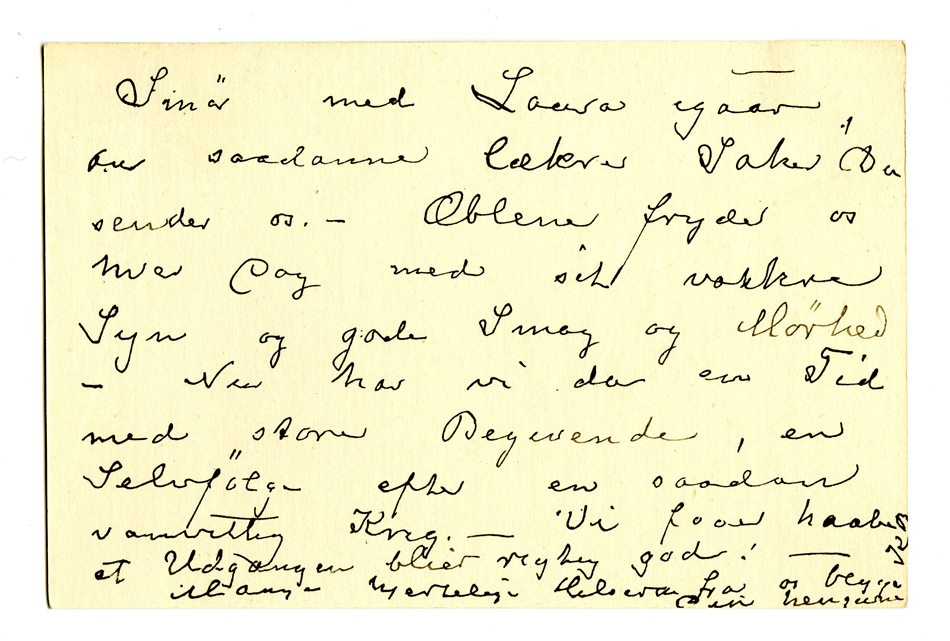 Smör med Laura igaar
saadanne lækre Saker Du
sender os. – Æblene fryder os
hver Dag med sit vakkre
Syn og gode Smag og Mörhed
– Nu har vi da en Tid
med store Begivende, en
Selvfölge efter en saadan
vanvittig Krig. – Vi faar haabe
at Udgangen bliver rigtig god! –
Mange hjertelige Hilsener fra os begge
Din hengivne